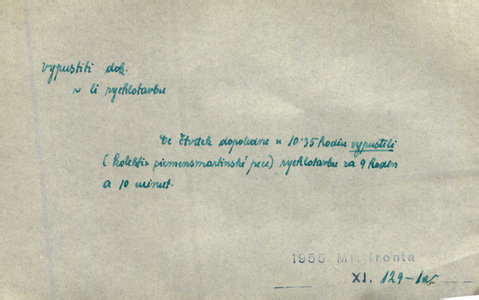 vypustiti dok.
v li rychlotavbu
Ve čtvrtek dopoledne v 10·35 hodin vypustili
( kolektiv siemensmartinské pece) rychlotavbu za 9 hodin
a 10 minut.
1955 Ml. fronta
XI. 129-1